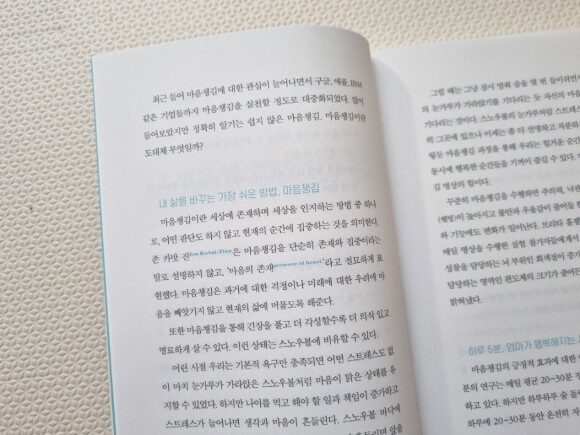 최근 들어 마음챙김에 대한 관심이 늘어나면서 구글, 애플, IBM
같은 기업들까지 마음챙김을 실천할 정도로 대중화되었다. 많이
들어보았지만 정확히 알기는 쉽지 않은 마음챙김. 마음챙김이란
도대체 무엇일까?
내 삶을 바꾸는 가장 쉬운 방법, 마음챙김
마음챙김이란 세상에 존재하며 세상을 인지하는 방법 중 하나
로, 어떤 판단도 하지 않고 현재의 순간에 집중하는 것을 의미한다.
존 카밧 진Jon Kabat-Zinn은 마음챙김을 단순히 존재와 집중이라는
말로 설명하지 않고, '마음의 존재presence of heart'라고 절묘하게 표
현했다. 마음챙김은 과거에 대한 걱정이나 미래에 대한 우려에 마
음을 빼앗기지 않고 현재의 삶에 머물도록 해준다.
또한 마음챙김을 통해 긴장을 풀고 더 각성할수록 더 의식 있고
명료하게 살 수 있다. 이런 상태는 스노우볼에 비유할 수 있다.
어린 시절 우리는 기본적 욕구만 충족되면 어떤 스트레스도 없
이 마치 눈가루가 가라앉은 스노우볼처럼 마음이 맑은 상태를 유
지할 수 있었다. 하지만 나이를 먹고 해야 할 일과 책임이 증가하고
스트레스가 늘어나면 생각과 마음이 흔들린다. 스노우볼 바닥에
그럴 때는 그냥 잠시 멈춰 숨을 몇 번 들이쉬면서
의 눈가루가 가라앉기를 기다리는 듯 자신의 마음
기다리는 것이다. 스노우볼의 눈가루처럼 스트레스
히 그곳에 있으나 이제는 좀 더 선명하고 차분하
렇듯 마음챙김 과정을 통해 우리는 힘겨운 순간
동시에 행복한 순간들을 기꺼이 즐길 수 있다. 이
김 명상의 힘이다.
꾸준히 마음챙김을 수행하면 주의력, 나
이 높아지고 불안과 우울감이 줄어들
는 기능에도 변화가 일어난다. 브리타 횔
매일 명상을 수행한 실험 참가자들에게서
성찰을 담당하는 뇌 부위인 회색질이 증가
담당하는 영역인 편도체의 크기가 줄어
밝혀냈다.
하루 5분, 엄마가 행복해지는
마음챙김의 긍정적 효과에 대한
분의 연구는 매일 평균 20~30분
하고 있다. 하지만 하루하루 숨 돌
하루에 20~30분 동안 온전히 자